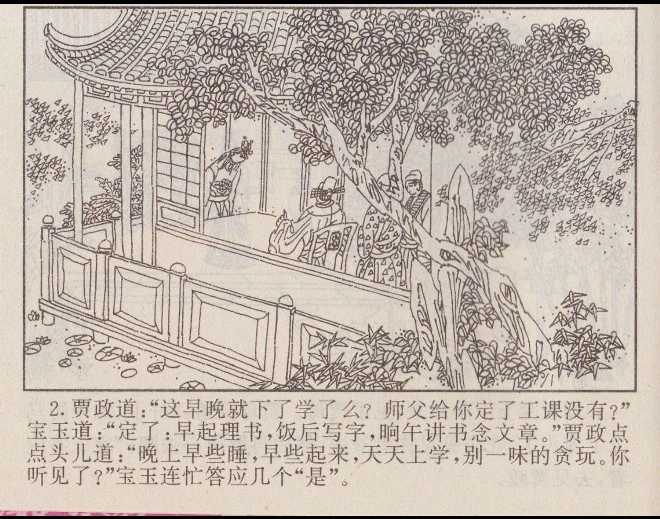 2. 贾政道：“这早晚就下了学了么？师父给你定了工课没有？”
宝玉道：“定了：早起理书，饭后写字，晌午讲书念文章。”贾政点
点头儿道：“晚上早些睡，早些起来，天天上学，别一味的贪玩。你
听见了？”宝玉连忙答应几个“是”。